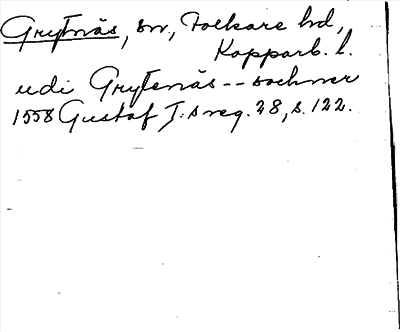 Grytnäs, sn, Folkare hd,
Kopparb. l.
udi Grytenäs -- sochner
1558 Gustaf I:s reg. 28, s. 122.